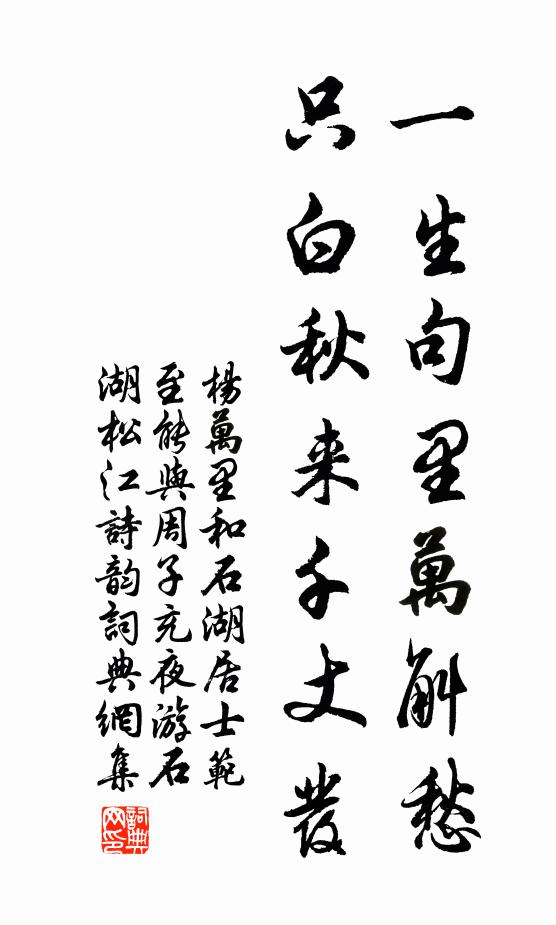 一生句里萬斛愁
只白秋来千丈發
楊萬里和石湖居士範
至能與周子充夜游石
湖松江詩韵詞典網集
詞典
网印